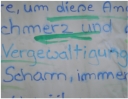 e, um diese An
chmerz und
Vergewaltigung
Scham, immer